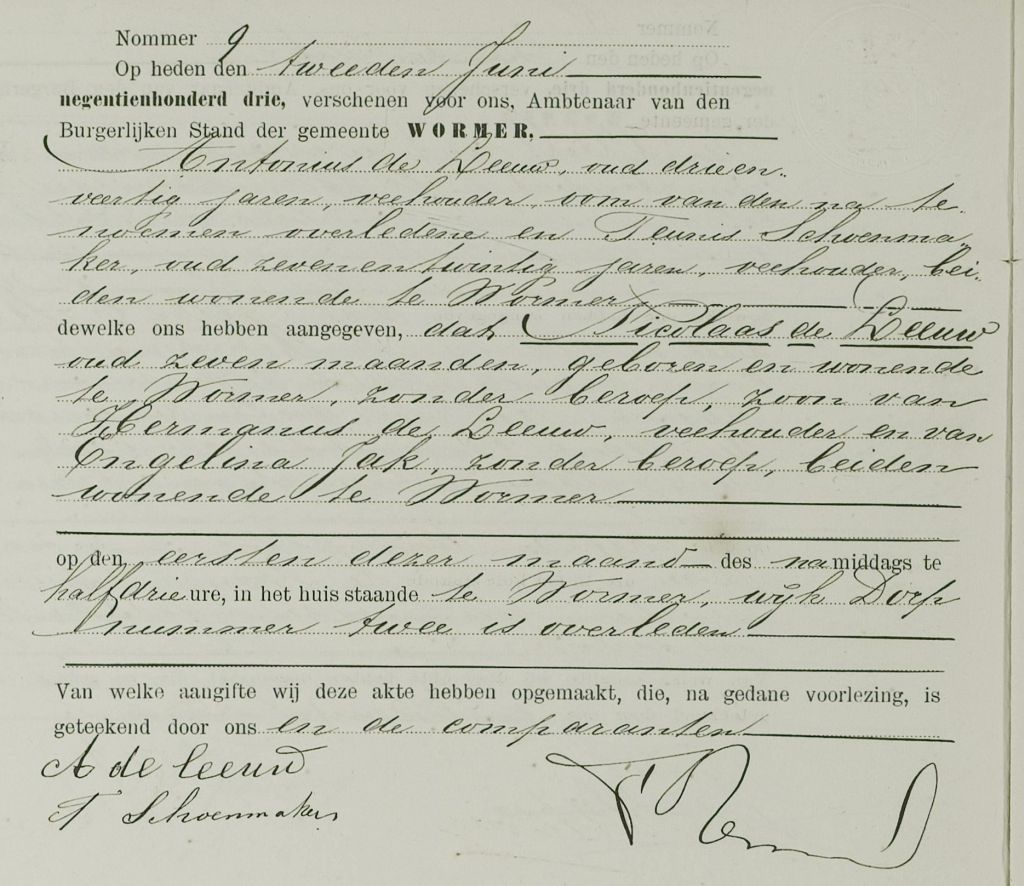 Nommer 9
Op heden den tweeden Juni
negentienhonderd drie, verschenen voor ons, Ambtenaar van den
Burgerlijken Stand der gemeente WORMER,
Antonius de Leeuw, oud drieen-
veertig jaren, veehouder, oom van den na te
noemen overledene en Teunis Schoenma-
ker, oud zevenentwintig jaren, veehouder, bei-
den wonende te Wormer
dewelke ons hebben aangegeven, dat Nicolaas de Leeuw
oud zeven maanden, geboren en wonende
te Wormer, zonder beroep, zoon van
Hermanus de Leeuw, veehouder en van
Engelina Jak, zonder beroep, beiden
wonende te Wormer
op den eersten dezer maand des namiddags te
half drie ure, in het huis staande te Wormer, wijk Dorp
nummer twee is overleden
Van welke aangifte wij deze akte hebben opgemaakt, die, na gedane voorlezing, is
geteekend door ons en de comparanten
A de Leeuw
T Schoenmaker